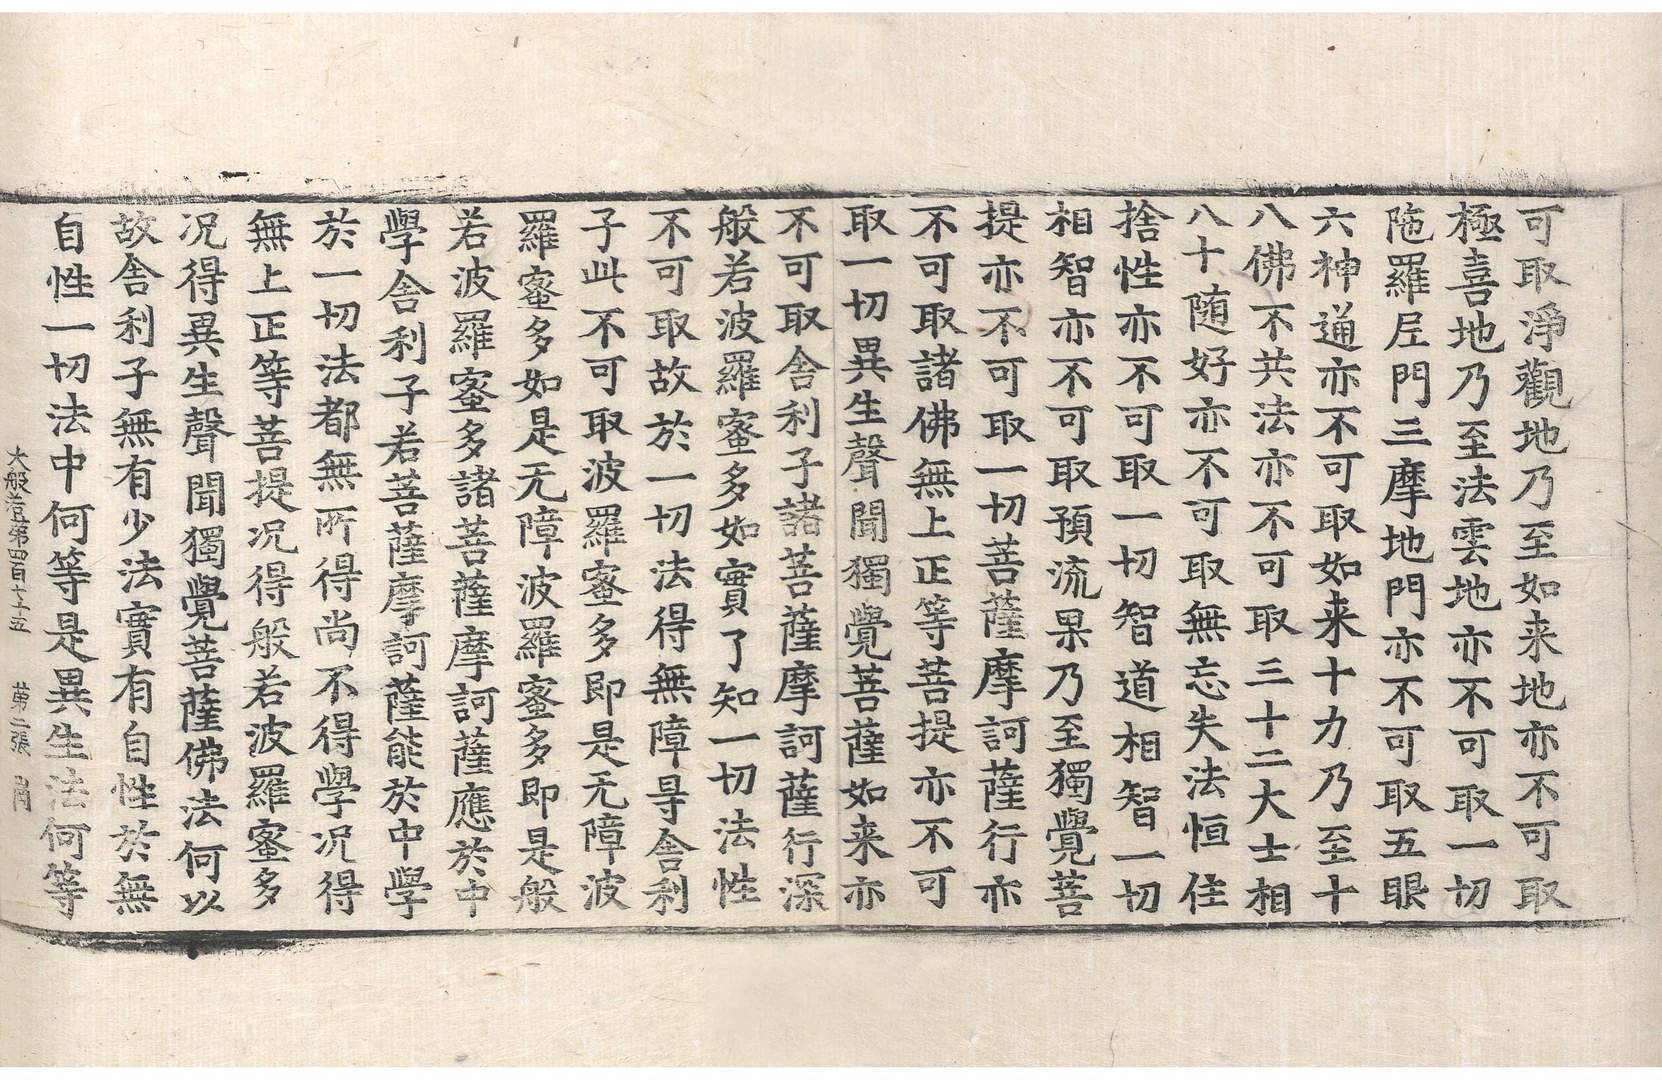 可取淨觀地乃至如来地亦不可取
極喜地乃至法雲地亦不可取一切
陁羅尼門三摩地門亦不可取五眼
六神通亦不可取如来十力乃至十
八佛不共法亦不可取三十二大士相
八十随好亦不可取無忘失法恒住
捨性亦不可取一切智道相智一切
相智亦不可取預流果乃至獨覺菩
提亦不可取一切菩薩摩訶薩行亦
不可取諸佛無上正等菩提亦不可
取一切異生聲聞獨覺菩薩如来亦
不可取舎利子諸菩薩摩訶薩行深
般若波羅蜜多如實了知一切法性
不可取故於一切法得無障㝵舎利
子此不可取波羅蜜多即是无障波
羅蜜多如是无障波羅蜜多即是般
若波羅蜜多諸菩薩摩訶薩應於中
學舎利子若菩薩摩訶薩能於中學
於一切法都無所得尚不得學况得
無上正等菩提况得般若波羅蜜多
况得異生聲聞獨覺菩薩佛法何以
故舎利子無有少法實有自性於無
自性一切法中何等是異生法何等
大般若第四百七十五 第二張 㞕